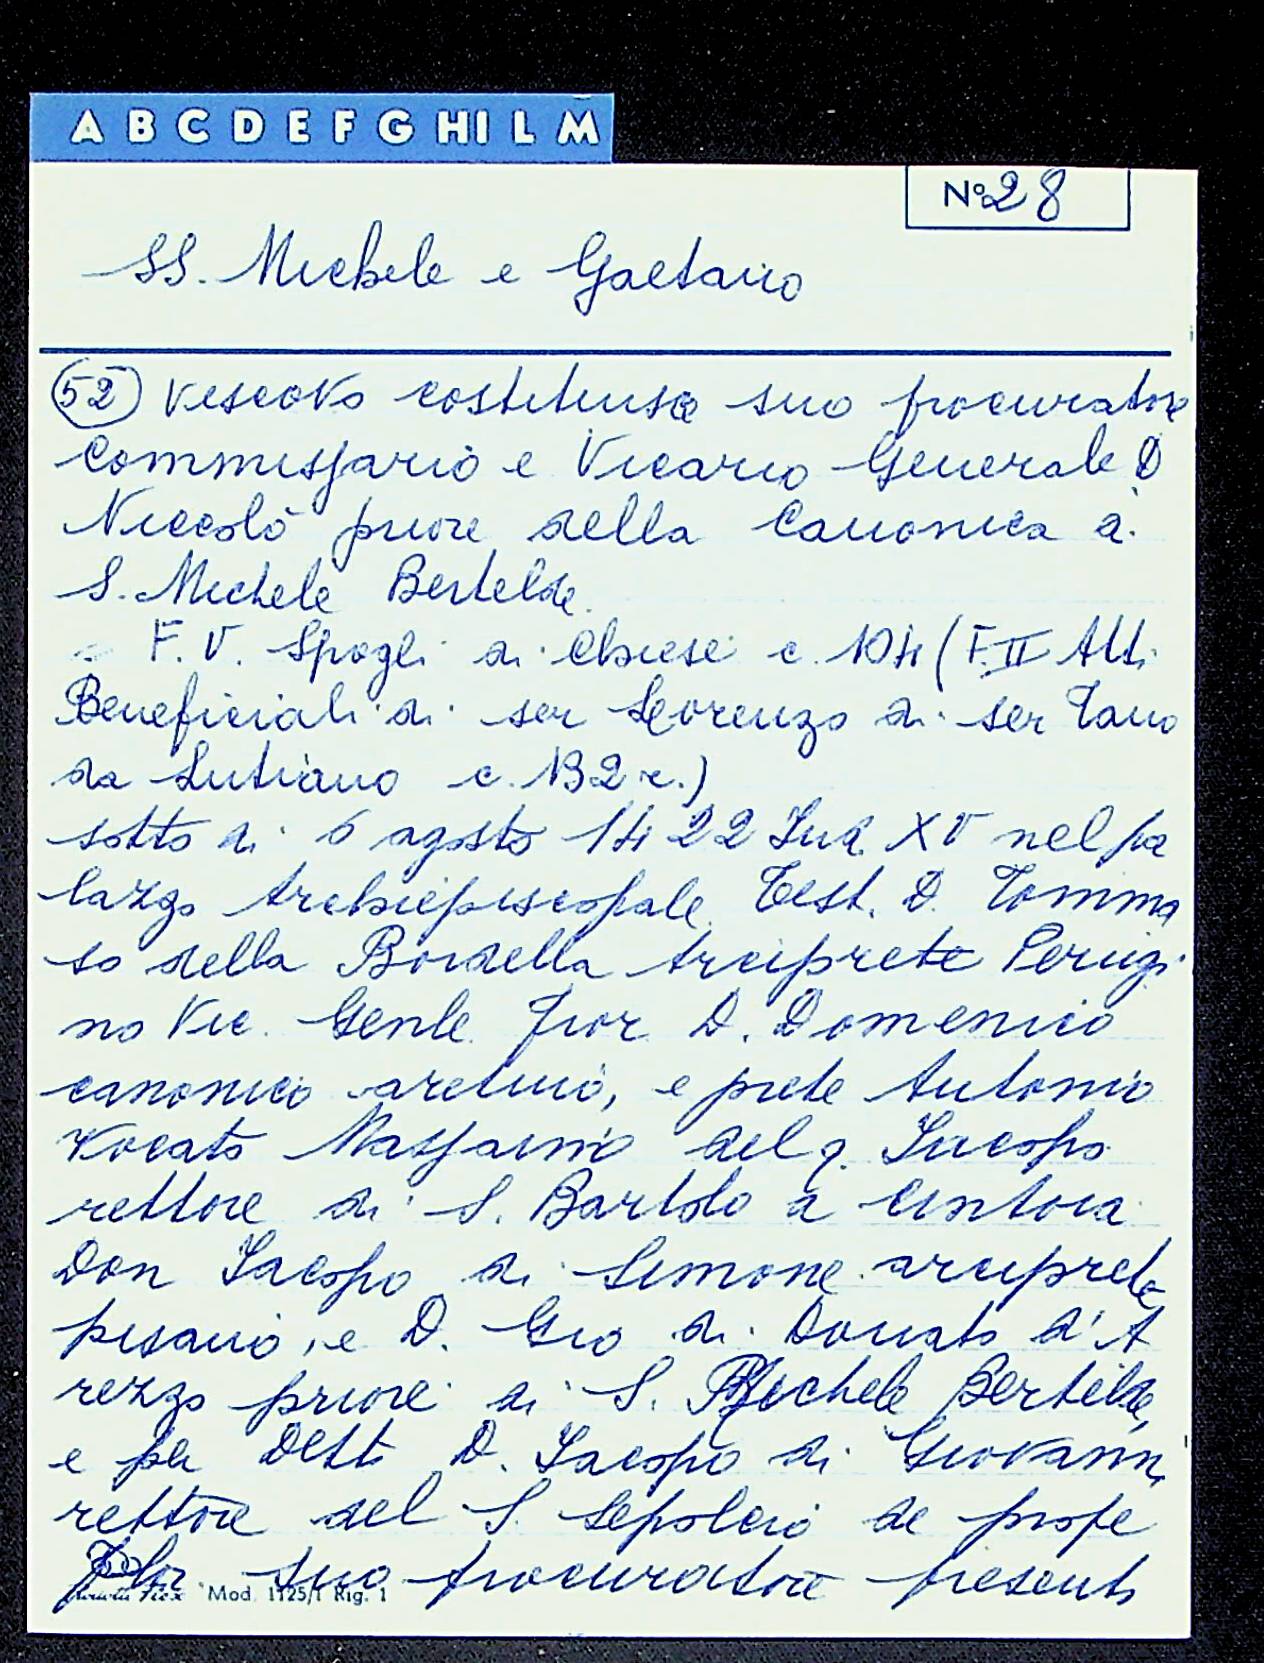 A B C D E F G HI L M
N° 28
SS. Michele e Gaetano
(52) Vescovo costituisce suo procuratore
Commissario e Vicario Generale D
Niccolò priore della Canonica di
S. Michele Bertelde
= F. V. Spogli di Chiese c. 104 (F. II Atti
Beneficiali di ser Lorenzo di ser Tano
da Lutiano c. 132 r.)
sotto di 6 agosto 1422 Ind. XV nel pa
lazzo Archiepiscopale Test. D. Tomma
so della Bordella Arciprete Perugi
no Vic. Genle Fior D. Domenico
canonico aretino, e prete Antonio
vocato Massaino del q. Iacopo
rettore di S. Bartolo a Cintoia
Don Iacopo di Simone arciprete
pisano, e D. Gio di Donato d'A
rezzo priore di S. Michele Bertelde,
e per detto D. Iacopo di Giovanni
rettore del S. Sepolcro de
suo procuratore presenti
Mod. 1125/1 Rig. 1